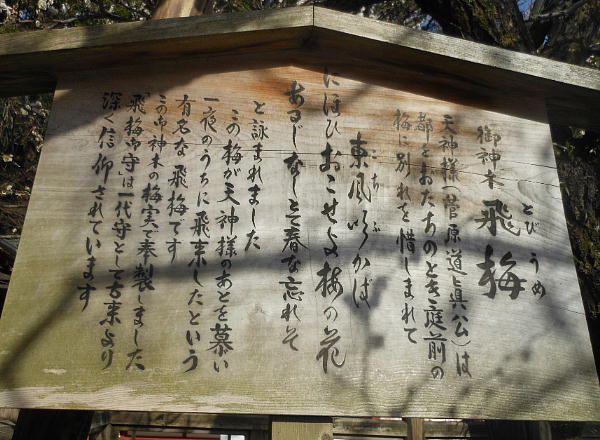 とびうめ
御神木 飛梅
天神様（菅原道真公）は
都をおたちのとき庭前の
梅に別れを惜しまれて
東風吹かば
こち ふ
にほひおこせよ梅の花
あるじなしとて春な忘れそ
と詠まれました
この梅が天神様のあとを慕い
一夜のうちに飛来したという
有名な飛梅です
この御神木の梅実で奉製しました
「飛梅御守」は一代守として古来より
深く信仰されています